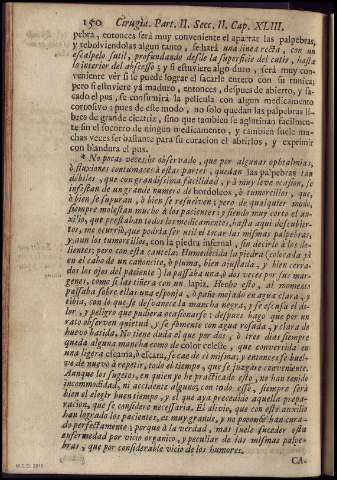 150 Cirugia. Part. II. Sect. II. Cap. XLIII.
pebra, entonces será muy conveniente el apartar las palpebras,
y rebolviendolas algun tanto, se hará una linea recta, con un
escalpelo sutil, profundando desde la superficie del cutis, hasta
lo interior del abscesso; y si estuviere algo duro, será muy con-
veniente vèr si se puede lograr el sacarle entero con su tunica;
pero si estuviere yá maduro, entonces, despues de abierto, y sa-
cado el pus, se consumirá la pelicula con algun medicamento
corrosivo: pues de este modo, no solo quedan las palpebras li-
bres de grande cicatriz, sino que tambien se aglutinan facilmen-
te sin el socorro de ningun medicamento, y tambien suele mu-
chas veces ser bastante para su curacion el abrirlos, y exprimir
con blandura el pus.
* No pocas veces he observado, que por algunas ophtalmias,
ò fluxiones contumaces à estas partes, quedan las palpebras tan
debiles, que con grandissima facilidad, y à muy leve ocasion, se
infestan de un grande numero de hordodeos, ò tumorcillos, que,
ò bien se supuran, ò bien se resuelven; pero de qualquier modo,
siempre molestan mucho à los pacientes; y siendo muy corto el au-
xilio, que prestaban todos los medicamentos, hasta aqui descubier-
tos, me ocurriò, que podria ser util el tocar las mismas palpebras,
y aun los tumorcillos, con la piedra infernal, sin decirle à los do-
lientes; pero con esta cautela: Humedecida la piedra (colocada yà
en el cabo de un cañoncito, ò pluma, bien ajustada, y bien cerra-
dos los ojos del paciente) la passaba una, ò dos veces por sus mar-
genes, como si las tiñera con un lapiz. Hecho esto, al momento
passaba sobre ellas una esponja, ò paño mojado en agua clara, y
tibia, con lo que se descarga la mancha negra, y se escusa el do-
lor, y peligro que pudiera ocasionarse: despues hago que por un
rato observen quietud, y se fomente con agua rosada, y clara de
huevo batida. No tiene duda el que por dos, ò tres dias siempre
queda alguna mancha como de color celeste, que convertida en
una ligera cicatriz, ò escara, se cae de sì misma; y entonces se buel-
ve de nuevo à repetir, todo el tiempo, que se juzgare conveniente.
Aunque los sugetos, en quien yo he practicado esto, no han tenido
incommodidad, ni accidente alguno; con todo esso, siempre será
bien el elegir buen tiempo, y el que aya precedido aquella prepa-
racion, que se considere necessaria. El alivio, que con este auxilio
han logrado los pacientes, es muy grande, y no poco me han cura-
do perfectamente; porque à la verdad, mas suele suceder esta
enfermedad por vicio organico, y peculiar de las mismas palpe-
bras, que por considerable vicio de los humores.
CA-